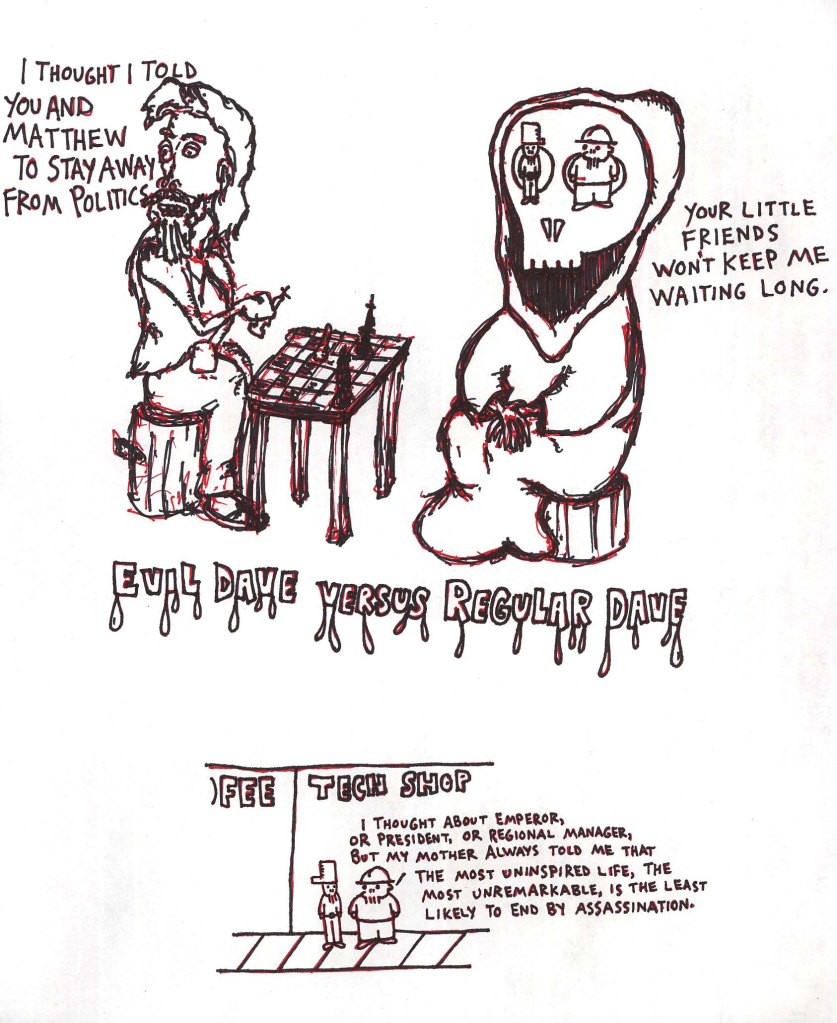 I THOUGHT I TOLD
YOU AND
MATTHEW
TO STAY AWAY
FROM POLITICS.
YOUR LITTLE
FRIENDS
WON'T KEEP ME
WAITING LONG.
EVIL DAVE VERSUS REGULAR DAVE
OFEE TECH SHOP
I THOUGHT ABOUT EMPEROR,
OR PRESIDENT, OR REGIONAL MANAGER,
BUT MY MOTHER ALWAYS TOLD ME THAT
THE MOST UNINSPIRED LIFE, THE
MOST UNREMARKABLE, IS THE LEAST
LIKELY TO END BY ASSASSINATION.